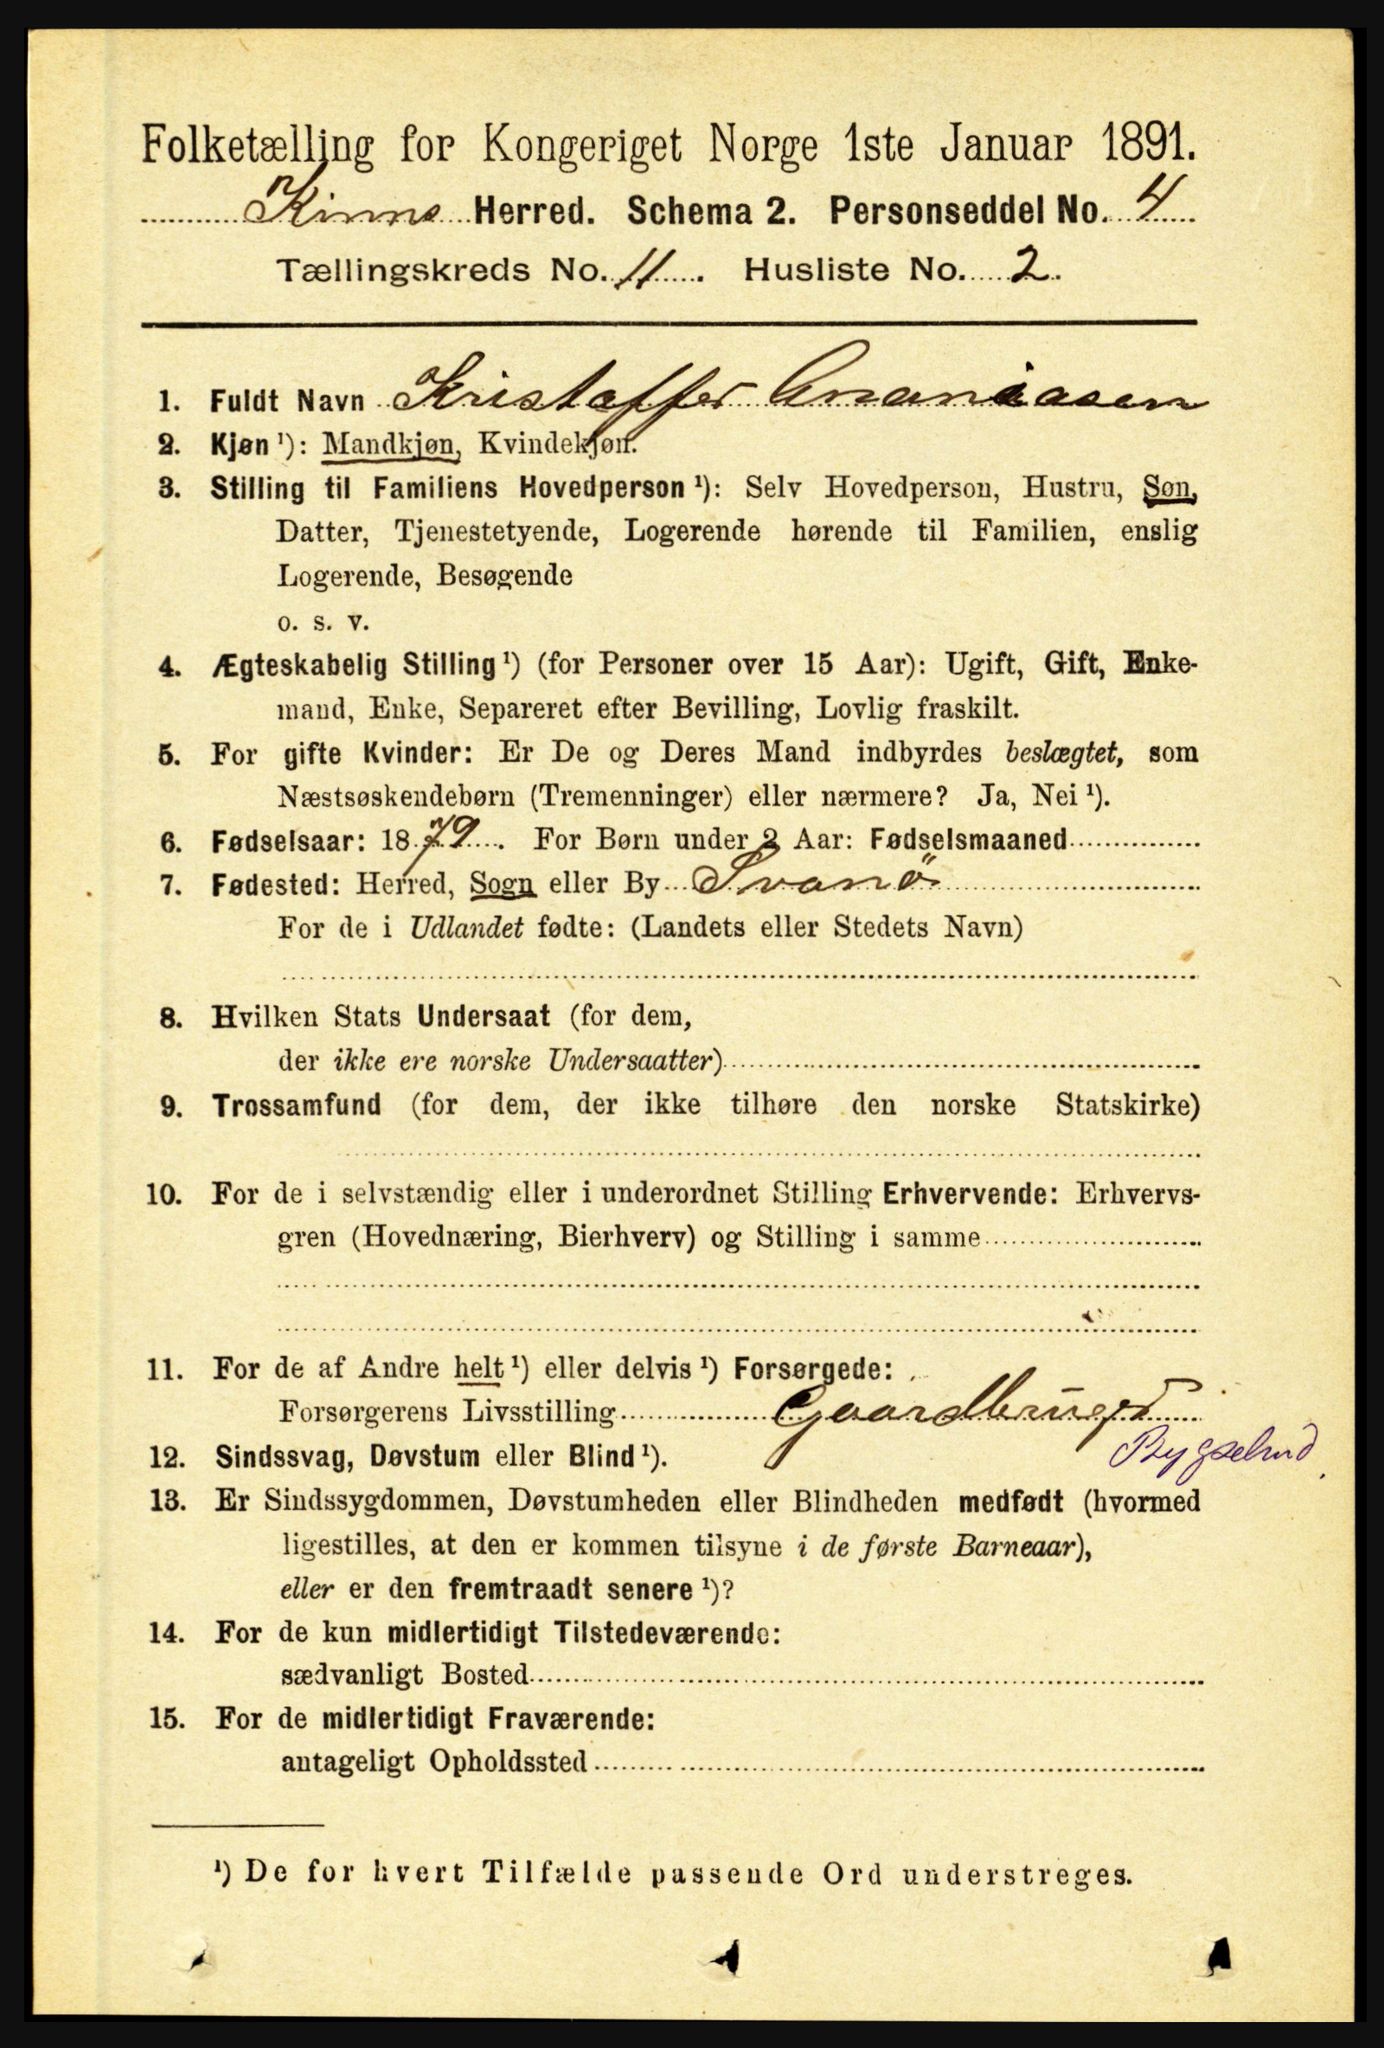 Folketælling for Kongeriget Norge 1ste Januar 1891.
Kinns Herred. Schema 2. Personseddel No. 4
Tællingskreds No. 11. Husliste No. 2.
1. Fuldt Navn Kristoffer Ananiasen
2. Kjøn ¹): Mandkjøn, Kvindekjøn.
3. Stilling til Familiens Hovedperson ¹): Selv Hovedperson, Hustru, Søn,
Datter, Tjenestetyende, Logerende hørende til Familien, enslig
Logerende, Besøgende
o. s. v.
4. Ægteskabelig Stilling ¹) (for Personer over 15 Aar): Ugift, Gift, Enke-
mand, Enke, Separeret efter Bevilling, Lovlig fraskilt.
5. For gifte Kvinder: Er De og Deres Mand indbyrdes beslægtet, som
Næstsøskendebørn (Tremenninger) eller nærmere? Ja, Nei ¹).
6. Fødselsaar: 1879. For Børn under 2 Aar: Fødselsmaaned
7. Fødested: Herred, Sogn eller By Svanö
For de i Udlandet fødte: (Landets eller Stedets Navn)
8. Hvilken Stats Undersaat (for dem,
der ikke ere norske Undersaatter)
9. Trossamfund (for dem, der ikke tilhøre den norske Statskirke)
10. For de i selvstændig eller i underordnet Stilling Erhvervende: Erhvervs-
gren (Hovednæring, Bierhverv) og Stilling i samme
11. For de af Andre helt ¹) eller delvis ¹) Forsørgede:
Forsørgerens Livsstilling Gaardbruger
Bygselmd.
12. Sindssvag, Døvstum eller Blind ¹).
13. Er Sindssygdommen, Døvstumheden eller Blindheden medfødt (hvormed
ligestilles, at den er kommen tilsyne i de første Barneaar),
eller er den fremtraadt senere ¹)?
14. For de kun midlertidigt Tilstedeværende:
sædvanligt Bosted
15. For de midlertidigt Fraværende:
antageligt Opholdssted
¹) De for hvert Tilfælde passende Ord understreges.